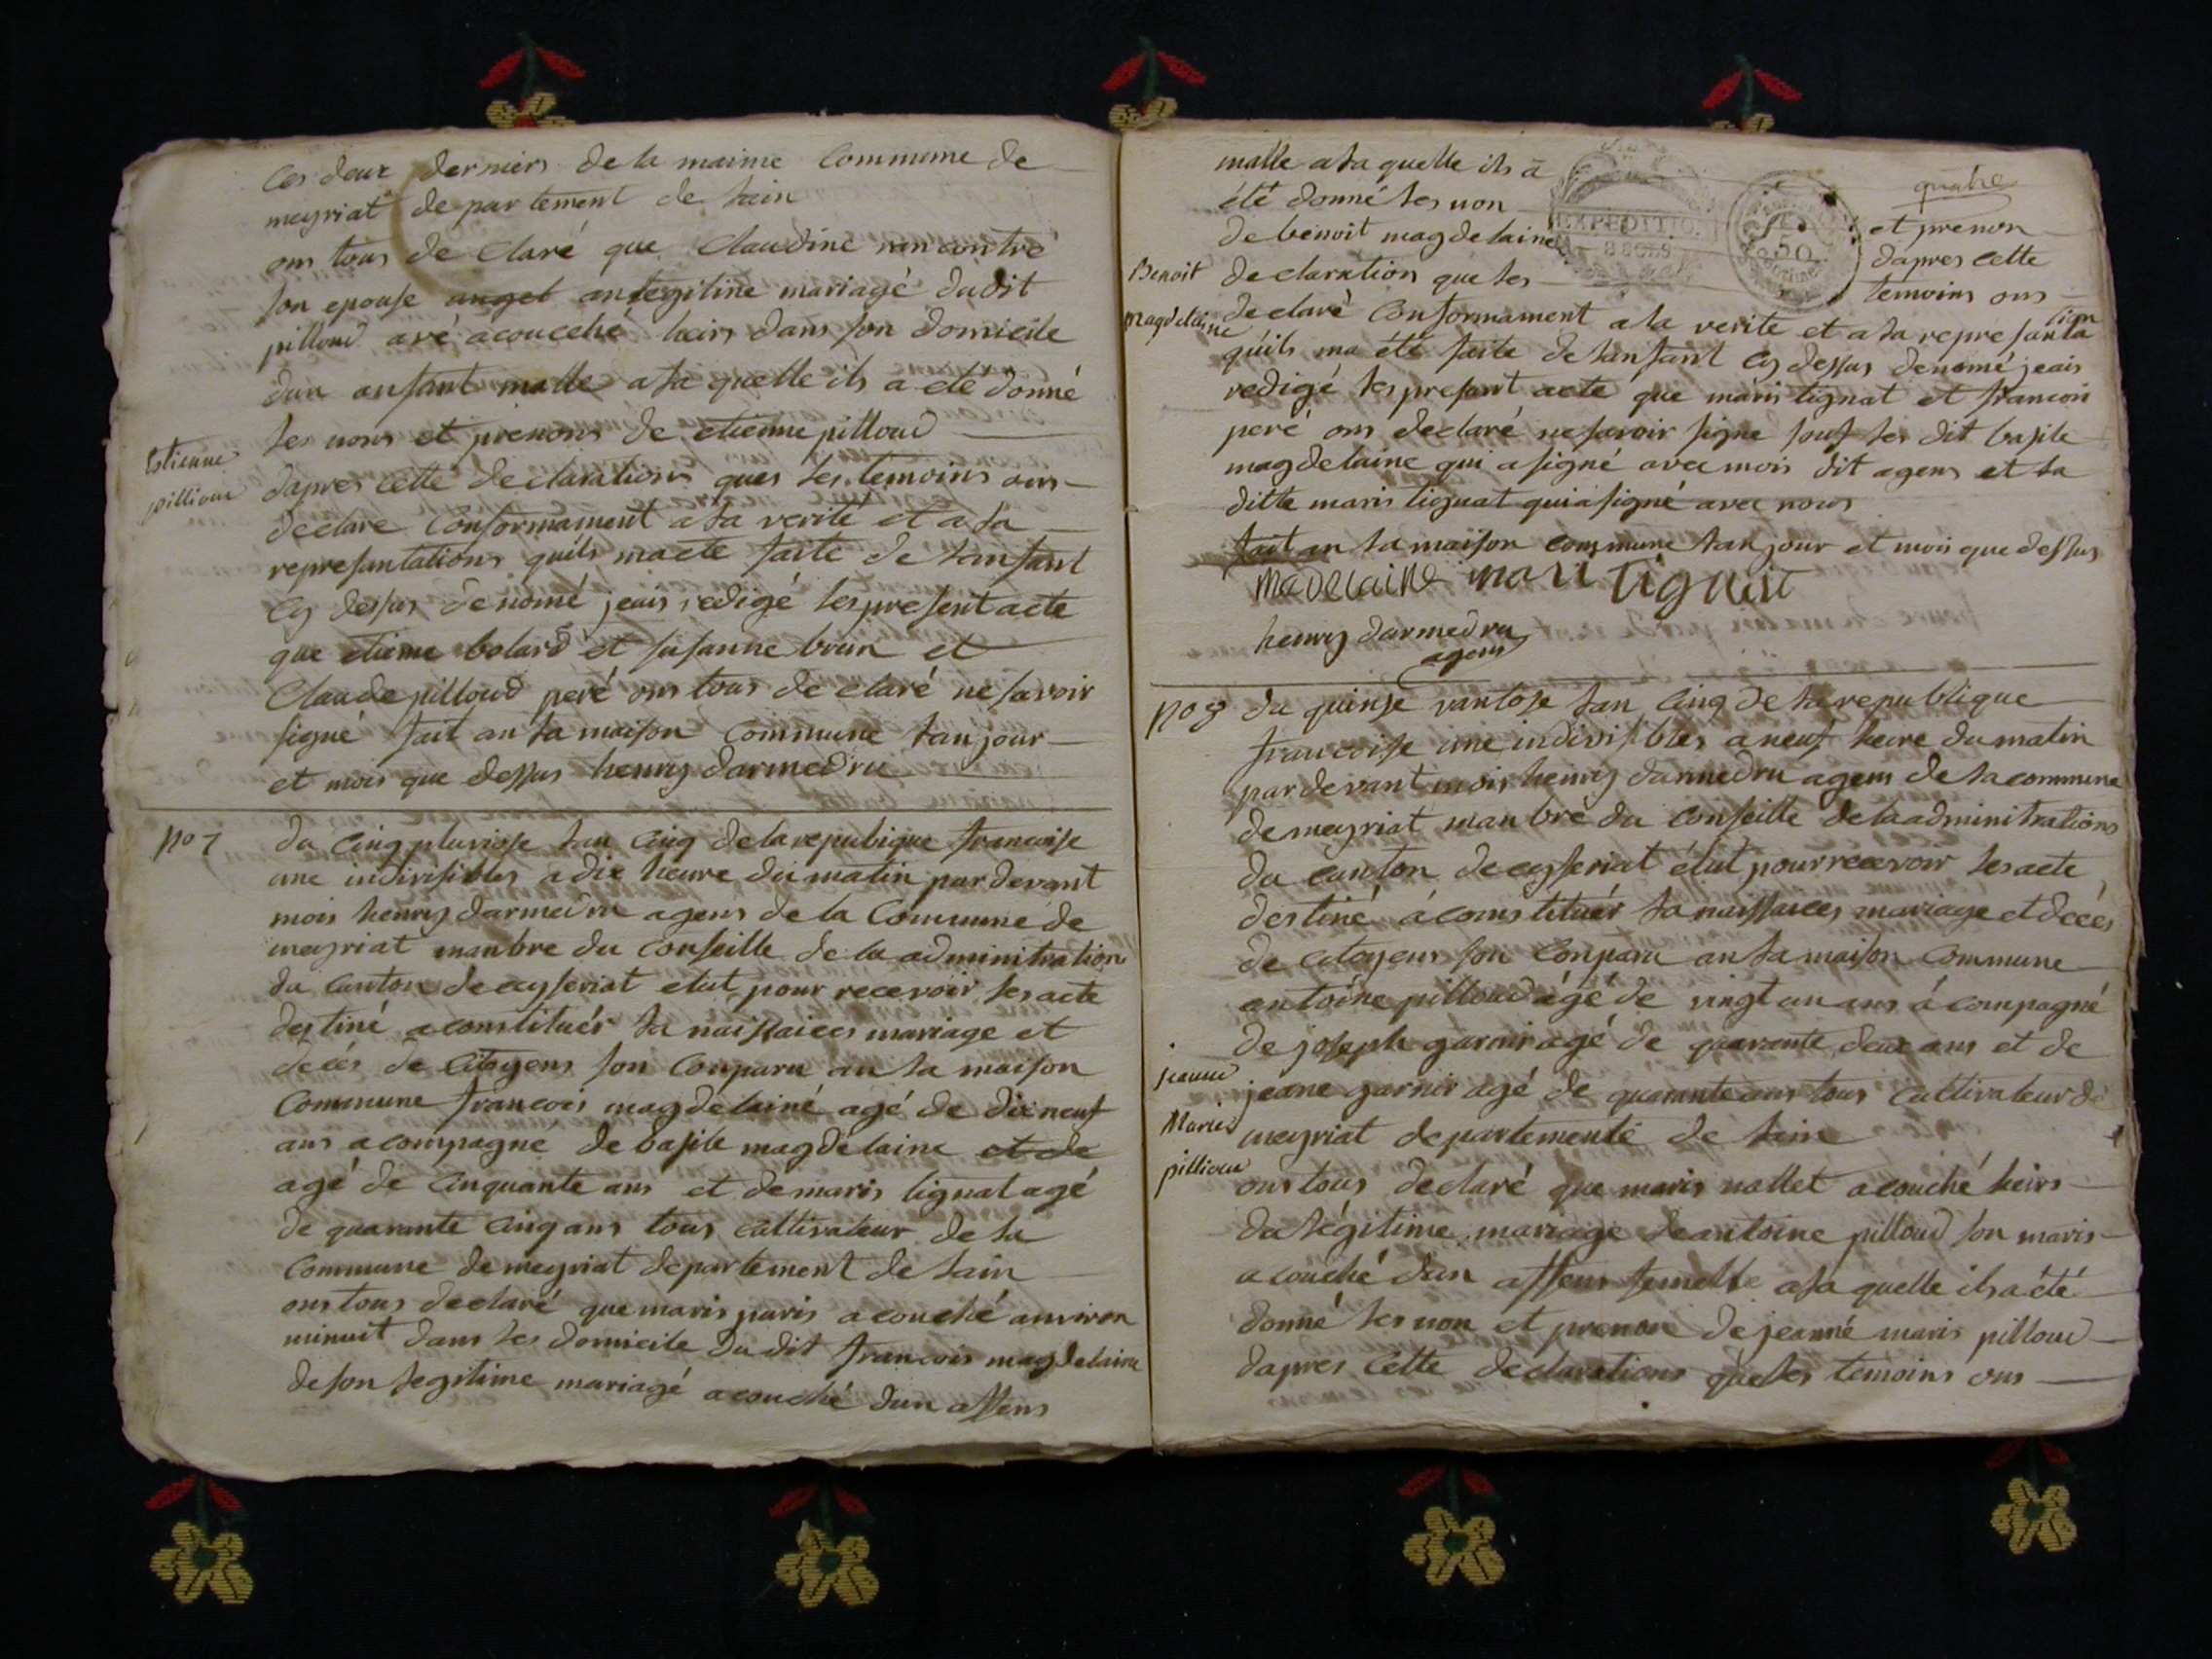 Ces deux derniers de la maime Commune de
meyriat departement de lain
ons tous de Claré que Claudine rancontre
son epouse anlegitine mariagé dudit
pilloud avé acoucché heirs dans son domicile
dun anfant malle ala quelle ils a eté donné
les nons et prenons de etienne pilloud
Estienne
pillioud
dapres cette declarations ques les temoins ons
declare Conformament ala verité et ala
represantations quils macte faite de lanfant
Cy dessus denomé jeais redigé les present acte
que etienne bolard et susanne brun et
Claude pilloud peré ons tous declaré ne savoir
signé fait an la maison Commune lan jour
et mois que dessus henry darmedru
no 7 du Cinq pluviose lan Cinq de la republique francoise
une indivisibles a dix heure du matin par devant
mois henry darmedru agens de la Commune de
meyriat manbre du Conseille de la adminitration
du Canton de ceyseriat elut pour recevoir les acte
destiné a constituér la naissaices mariage et
decés de Citoyens son Conparu an la maison
Commune francois magdelainé agé de dix neuf
ans a compagné de basile magdelaine et de
agé de Cinquante ans et de maris tignat agé
de quarante Cinq ans tous Cultivateur de la
Commune de meyriat departement de lain
ons tous declaré que maris paris acouché anviron
minuit dans les domicile du dit francois magdelaine
de son legitime mariagé acouché dun assens
malle ala quelle ils a
été donné les non
quatre
et prenon
de benoit magdelaine
dapres cette
EXPEDITION
50
Benoit
magdelaine
declaration que les
temoins ons
declaré Conformament ala verite et ala represanta
tion
quils ma été faite de lanfant Cy dessus denomé jeais
redigé les present acte que maris tignat et francois
peré ons declaré ne savoir signe souf les dit basile
magdelaine qui a signé avec mois dit agens et la
ditte maris tignat qui a signé avec nous
fait an la maison commune lan jour et mois que dessus
madelaine mari tignat
henry darmedru
agens
no 8 du quinse vantose lan Cinq de la republique
francoise une indivisibles a neuf heure du matin
par devant mois henry darmedru agens de la commune
de meyriat manbre du Conseille de la adminitrations
du Canton de ceyseriat élut pour recevoir les acte
destiné á constituér la naissaices mariage et decés
de Citoyens son Conparu an la maison Commune
antoine pilloud âgé de vingt un ans á compagné
de joseph garnir agé de quarante deux ans et de
jeanne
Marie
pillioud
jeane garnir agé de quarante ans tous Cultivateur de
meyriat departementé de lain
ons tous declaré que maris nallet acouché heirs
du légitime mariage de antoine pilloud son maris
acouché dun assens femelle ala quelle ils a été
donné les non et prenon de jeanné maris pilloud
dapres Cette declarations que les temoins ons